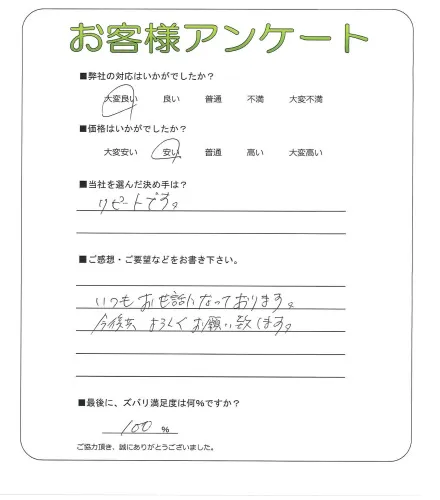 お客様アンケート
■弊社の対応はいかがでしたか？
大変良い 良い 普通 不満 大変不満
■価格はいかがでしたか？
大変安い 安い 普通 高い 大変高い
■当社を選んだ決め手は？
リピートです。
■ご感想・ご要望などをお書き下さい。
いつもお世話になっております。
今後共よろしくお願い致します。
■最後に、ズバリ満足度は何％ですか？
100 ％
ご協力頂き、誠にありがとうございました。